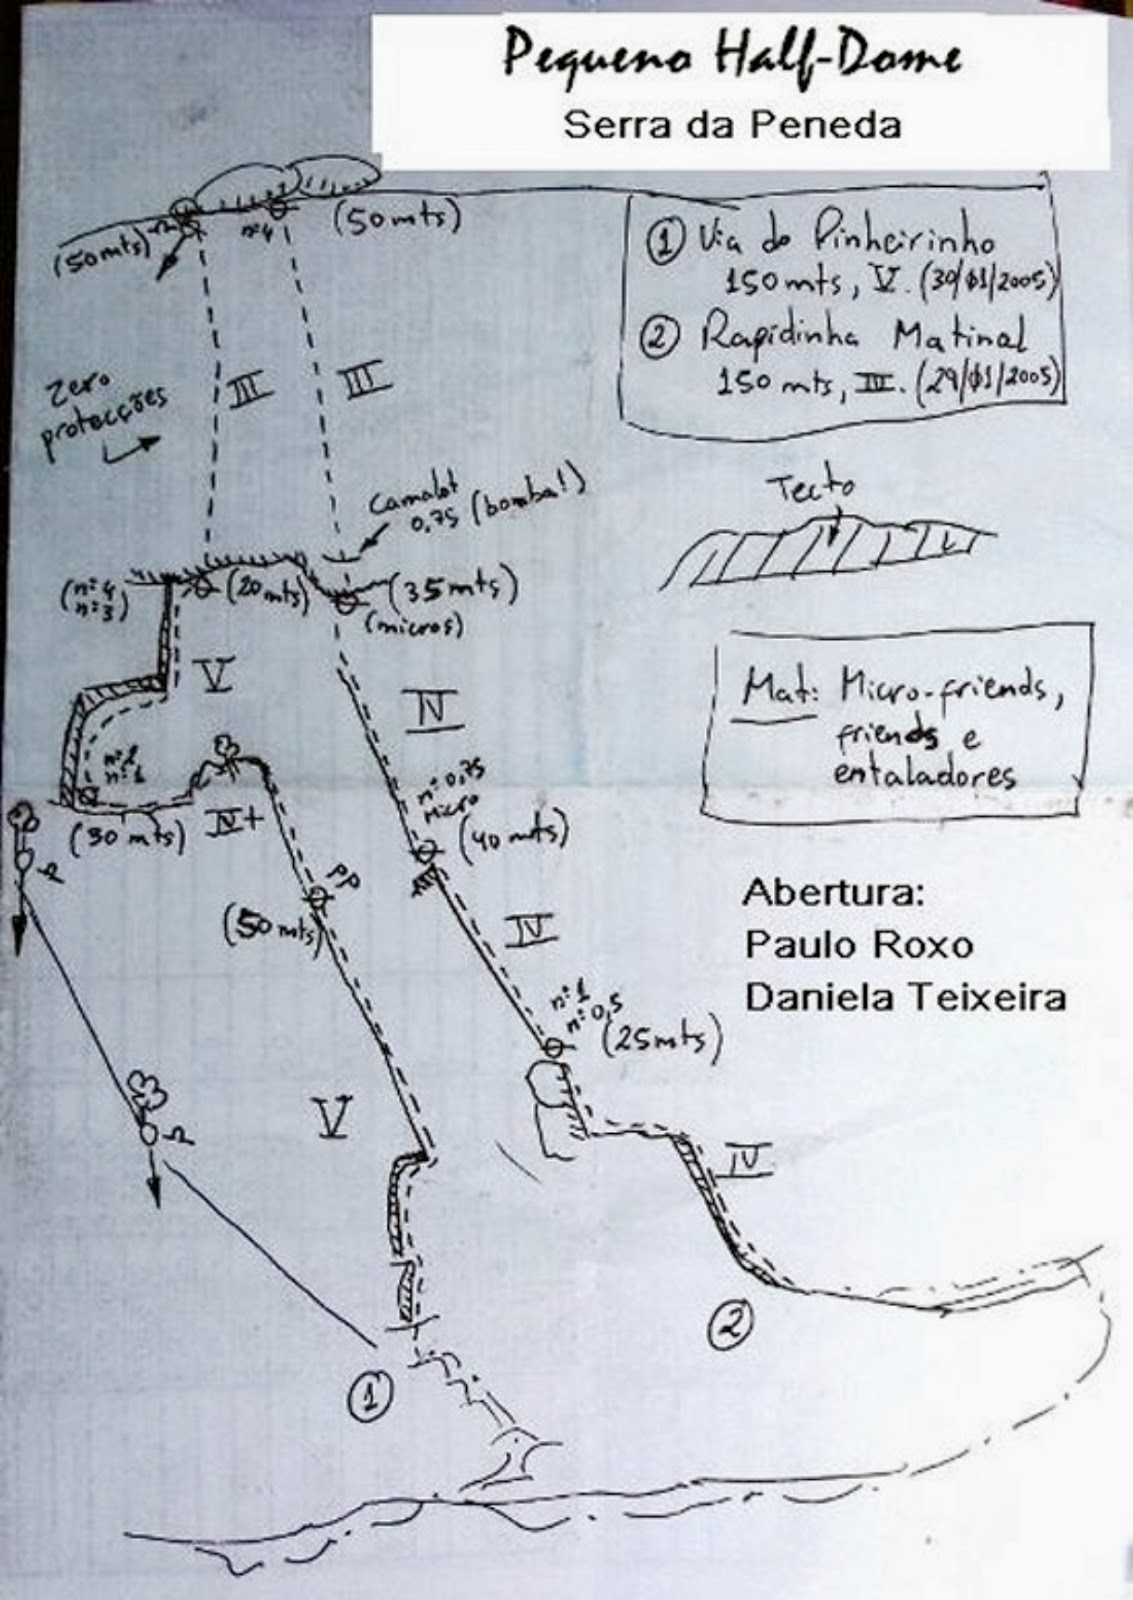 Pequeno Half-Dome
Serra da Peneda
(50 mts)
nº4
(50 mts)
① Via do Pinheirinho
150 mts, V. (30/01/2005)
② Rapidinha Matinal
150 mts, IV. (29/01/2005)
Zero
protecções
III
III
Camalot
0,75 (bomba!)
Tecto
(nº4
nº3)
(20 mts)
(35 mts)
(micros)
V
IV
Mat: Micro-friends,
friends e
entaladores
nº2
nº1
nº 0,75
micro
(30 mts)
IV+
(40 mts)
PP
(50 mts)
IV
Abertura:
Paulo Roxo
Daniela Teixeira
nº1
nº 0,5
(25 mts)
V
IV
②
①